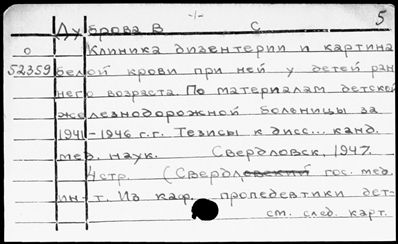 -1-
5
Дуброва В С
о Клиника дизентерии и картина
52359 белой крови при ней у детей ран
него возраста. По материалам детской
железнодорожной больницы за
1941-1946 г.г. Тезисы к дисс... канд.
мед. наук. Свердловск, 1947.
4стр. (Свердловский гос. мед.
ин-т. Из каф. пропедевтики дет-
см. след. карт.